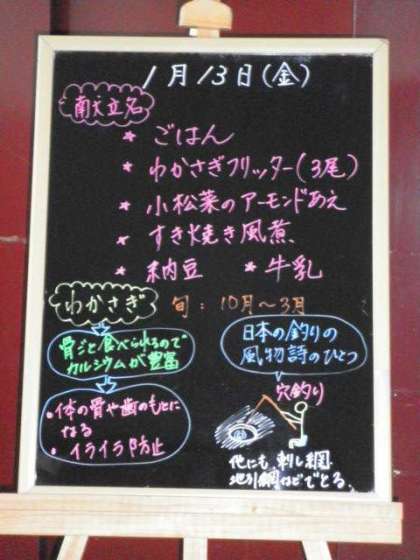 1月13日(金)
献立名
* ごはん
* わかさぎフリッター(3尾)
* 小松菜のアーモンドあえ
* すき焼き風煮
* 納豆 * 牛乳
わかさぎ 旬:10月~3月
骨ごと食べられるので
カルシウムが豊富
・体の骨や歯のもとに
なる
・イライラ防止
日本の釣りの
風物詩のひとつ
穴釣り
他にも 刺し網
地引網などでとる。